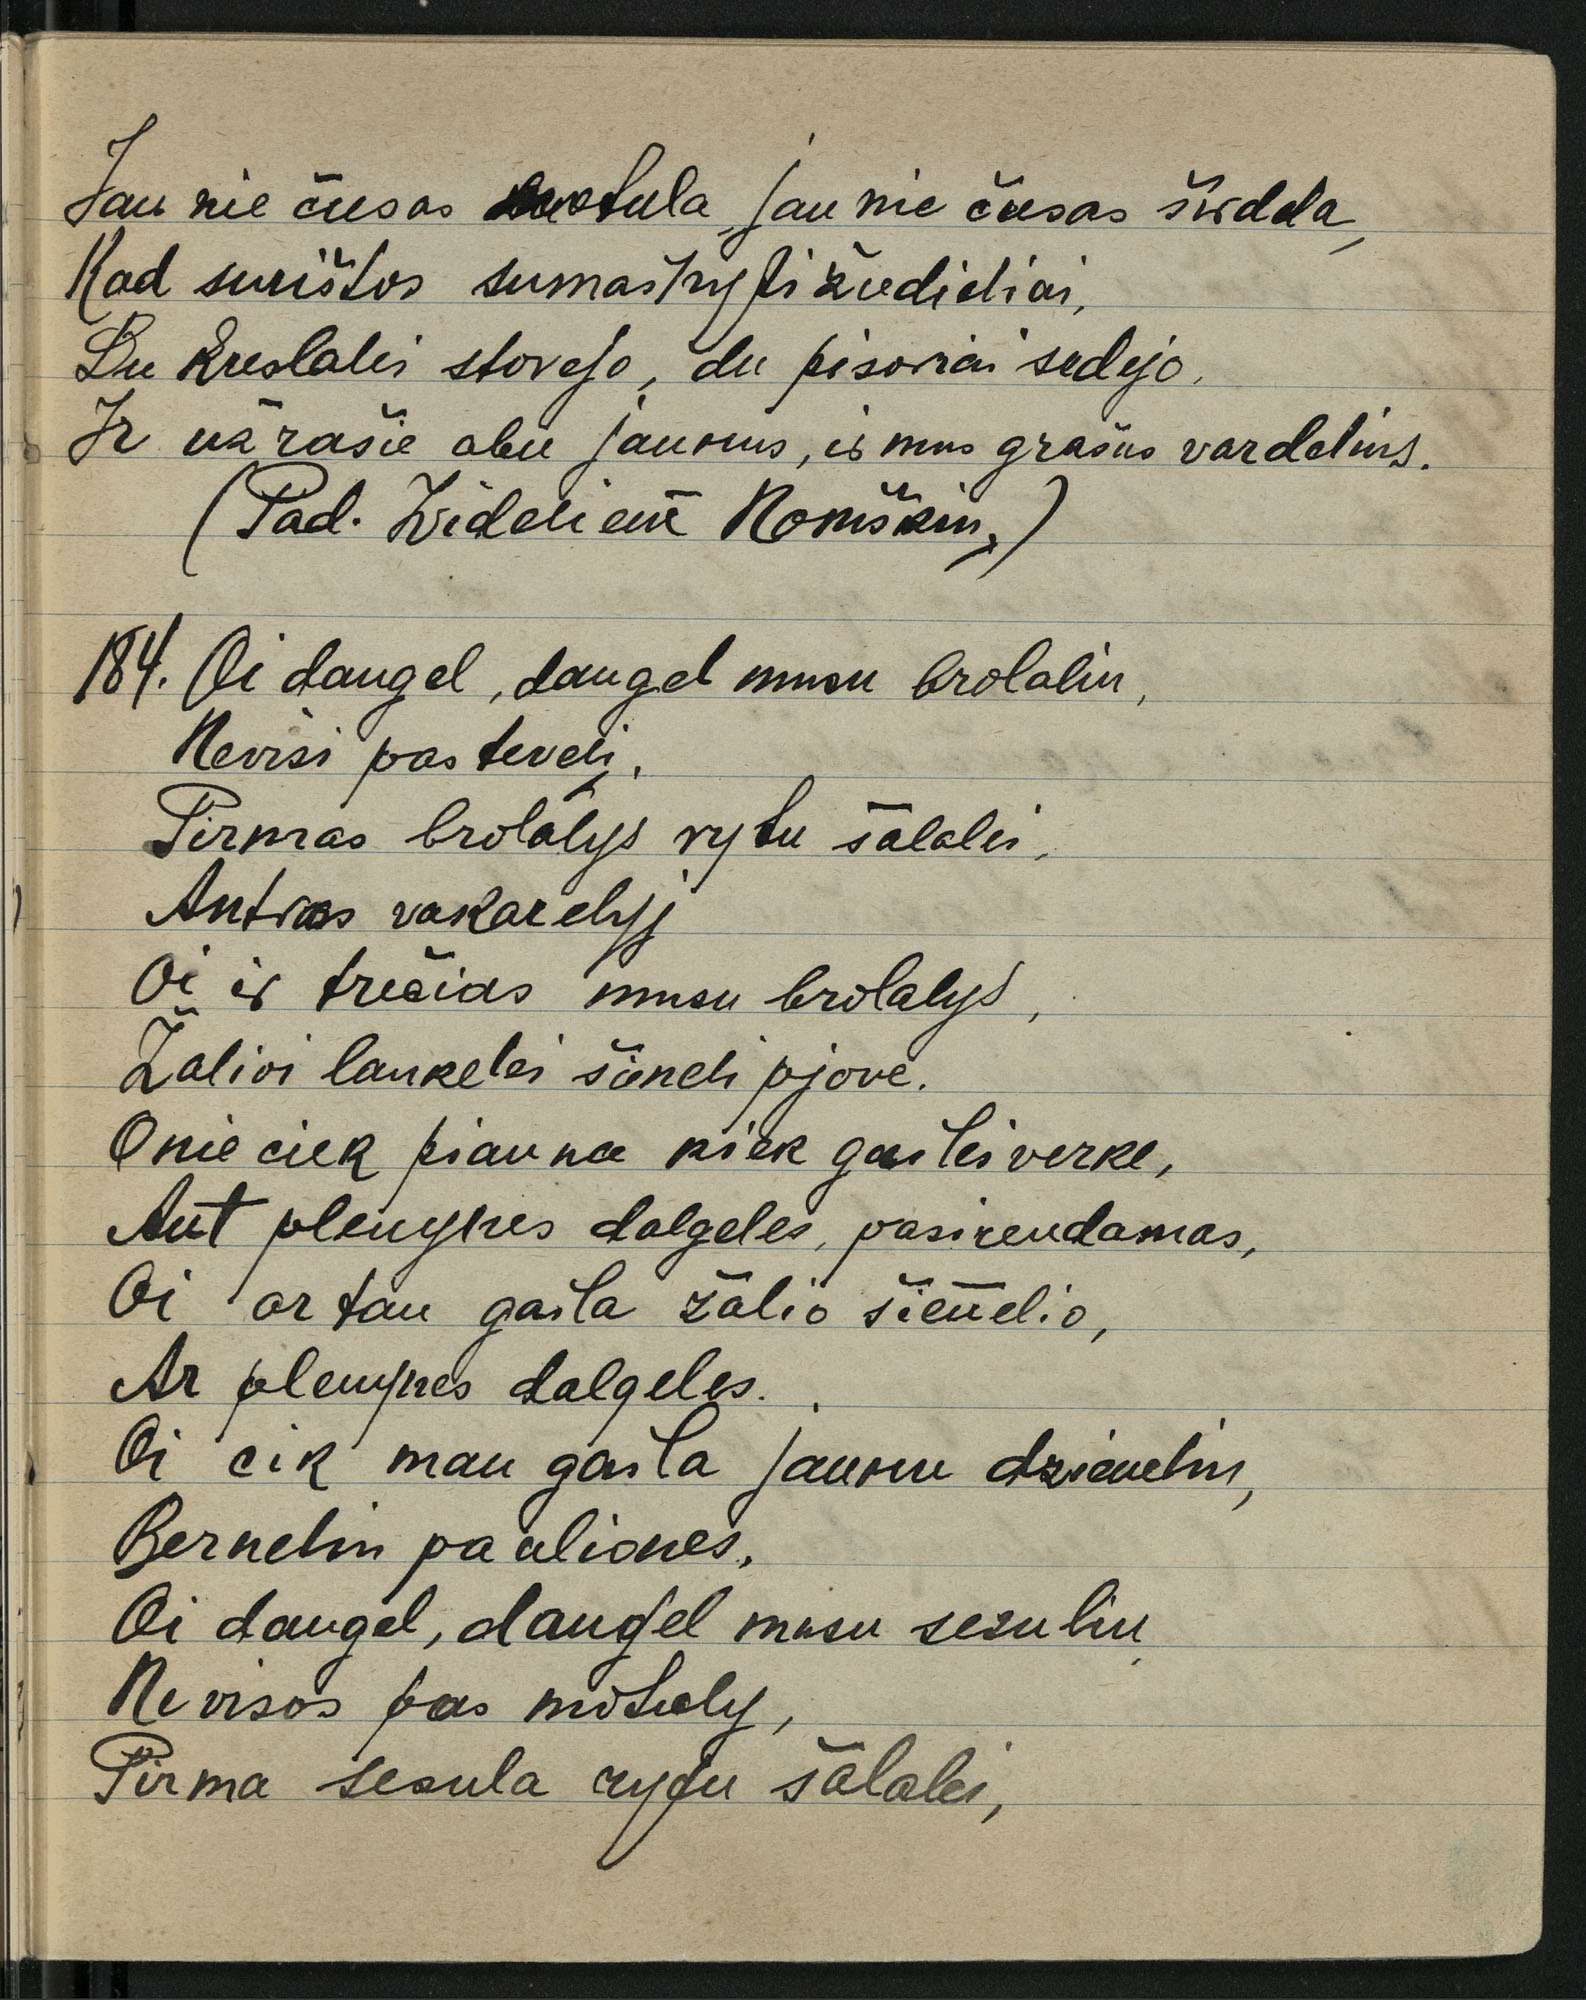 Jau nie čiesas motula, jau nie čiesas širdela,
Kad surištos sumaštyti žiedieliai,
Du kreslalei stovejo, du pisoriai sedejo,
Ir užrašie abu jaunus, ir mus gražus vardelius.
(Pad. Žvidelienē Romškin,)
184. Oi daugel, daugel musu brolaliu,
Nevisi pas tevelį,
Pirmas brolalys rytu šālalei,
Antras vakarelyj
Oi ir trečias musu brolalys,
Žalioi lankelei šieneli pjove.
O nie ciek piauna kiek gailei verke,
Ant plenyčnes dalgeles, pasiremdamas,
Oi ar tau gaila žālio šiēnelio,
Ar plenyčnes dalgeles.
Oi cik man gaila jaunu dzieneliu,
Berneliu paaliones,
Oi daugel, daugel musu sesuliu,
Ne visos pas motuly,
Pirma sesula rytu šālalei,